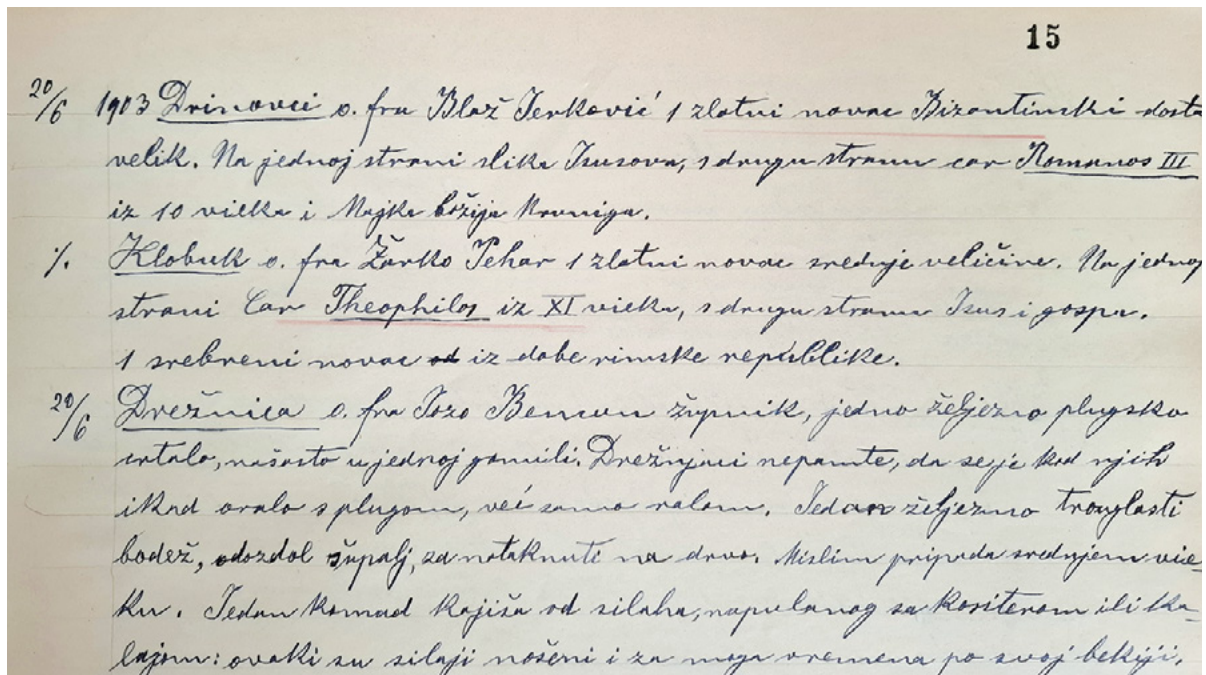 15
20/6 1903 Drinovci o. fra Blaž Jerković 1 zlatni novac Bizantinski dosta
velik. Na jednoj strani slika Isusova, s drugu stranu car Romanos III
iz 10 vieka i Majka božija
%. Klobuk o. fra Žarko Pehar 1 zlatni novac srednje veličine. Na jednoj
strani Car Theophilos iz XI vieka, s drugu stranu Isus i gospa.
1 srebreni novac od iz dobe rimske republike.
20/6 Drežnica o. fra Jozo Bencun župnik, jedno željezno plugsko
crtalo, našasto u jednoj gomili. Drežnjaci nepamte, da se je kod njih
ikad oralo s plugom, već samo ralom. Jedan željezno trouglasti
bodež, odozdol šupalj, za nataknuti na drvo. Mislim pripada srednjem vie-
ku. Jedan komad kajiša od silaha, napulanog sa kositerom ili ka-
lajom: ovaki su silaji nošeni i za moga vremena po svoj bekiji.